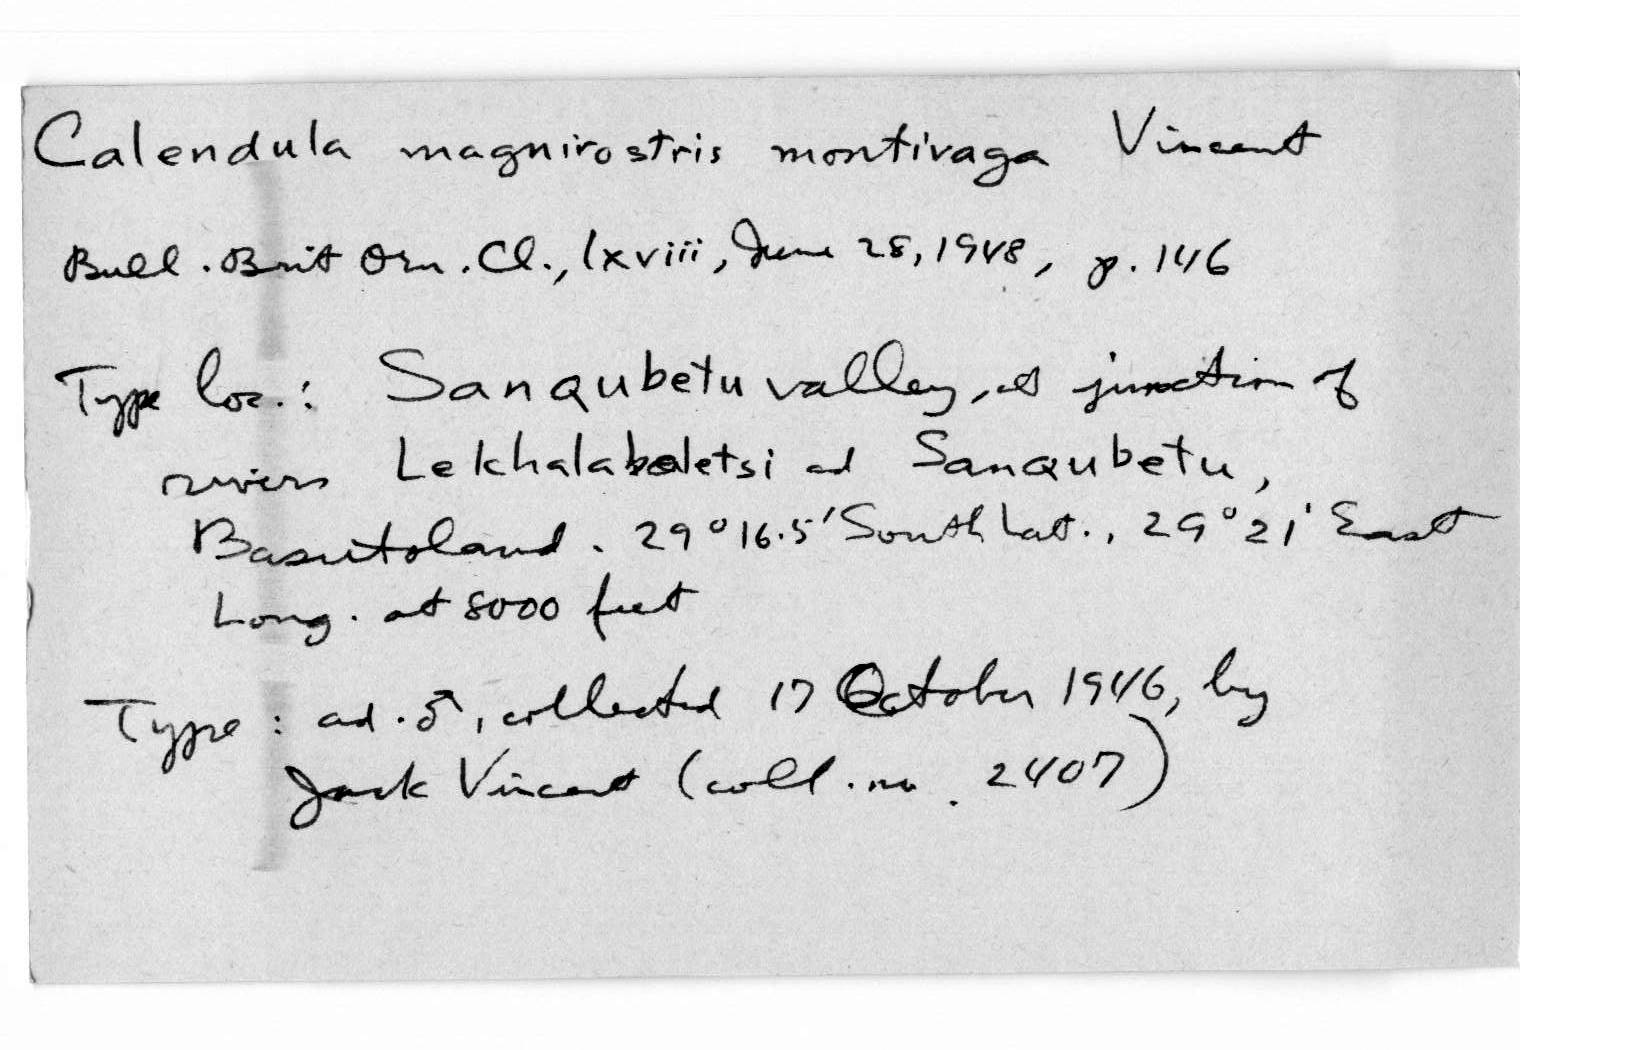 Calendula magnirostris montivaga Vincent
Bull. Brit Orn. Cl., lxviii, June 28, 1948, p. 146
Type loc.: Sanqubetu valley, at junction of
rivers Lekhalabaletsi and Sanqubetu,
Basutoland. 29°16.5' South Lat., 29°21' East
Long. at 8000 feet
Type: ad. ♂, collected 17 October 1946, by
Jack Vincent (coll. no. 2407)